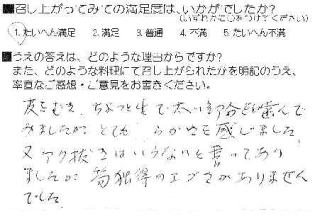 ■召し上がってみての満足度は、いかがでしたか?
(いずれかに○をつけてください)
1.たいへん満足 2.満足 3.普通 4.不満 5.たいへん不満
■うえの答えは、どのような理由からですか?
また、どのような料理にて召し上がられたかを明記のうえ、
率直なご感想・ご意見をお書きください。
皮をむき、ちょっと生で太い輪を噛んで
みましたが とても らかさを感じました
又アク抜きはいらないと書いてあり
ましたが 独得のエグさがありません
でした。